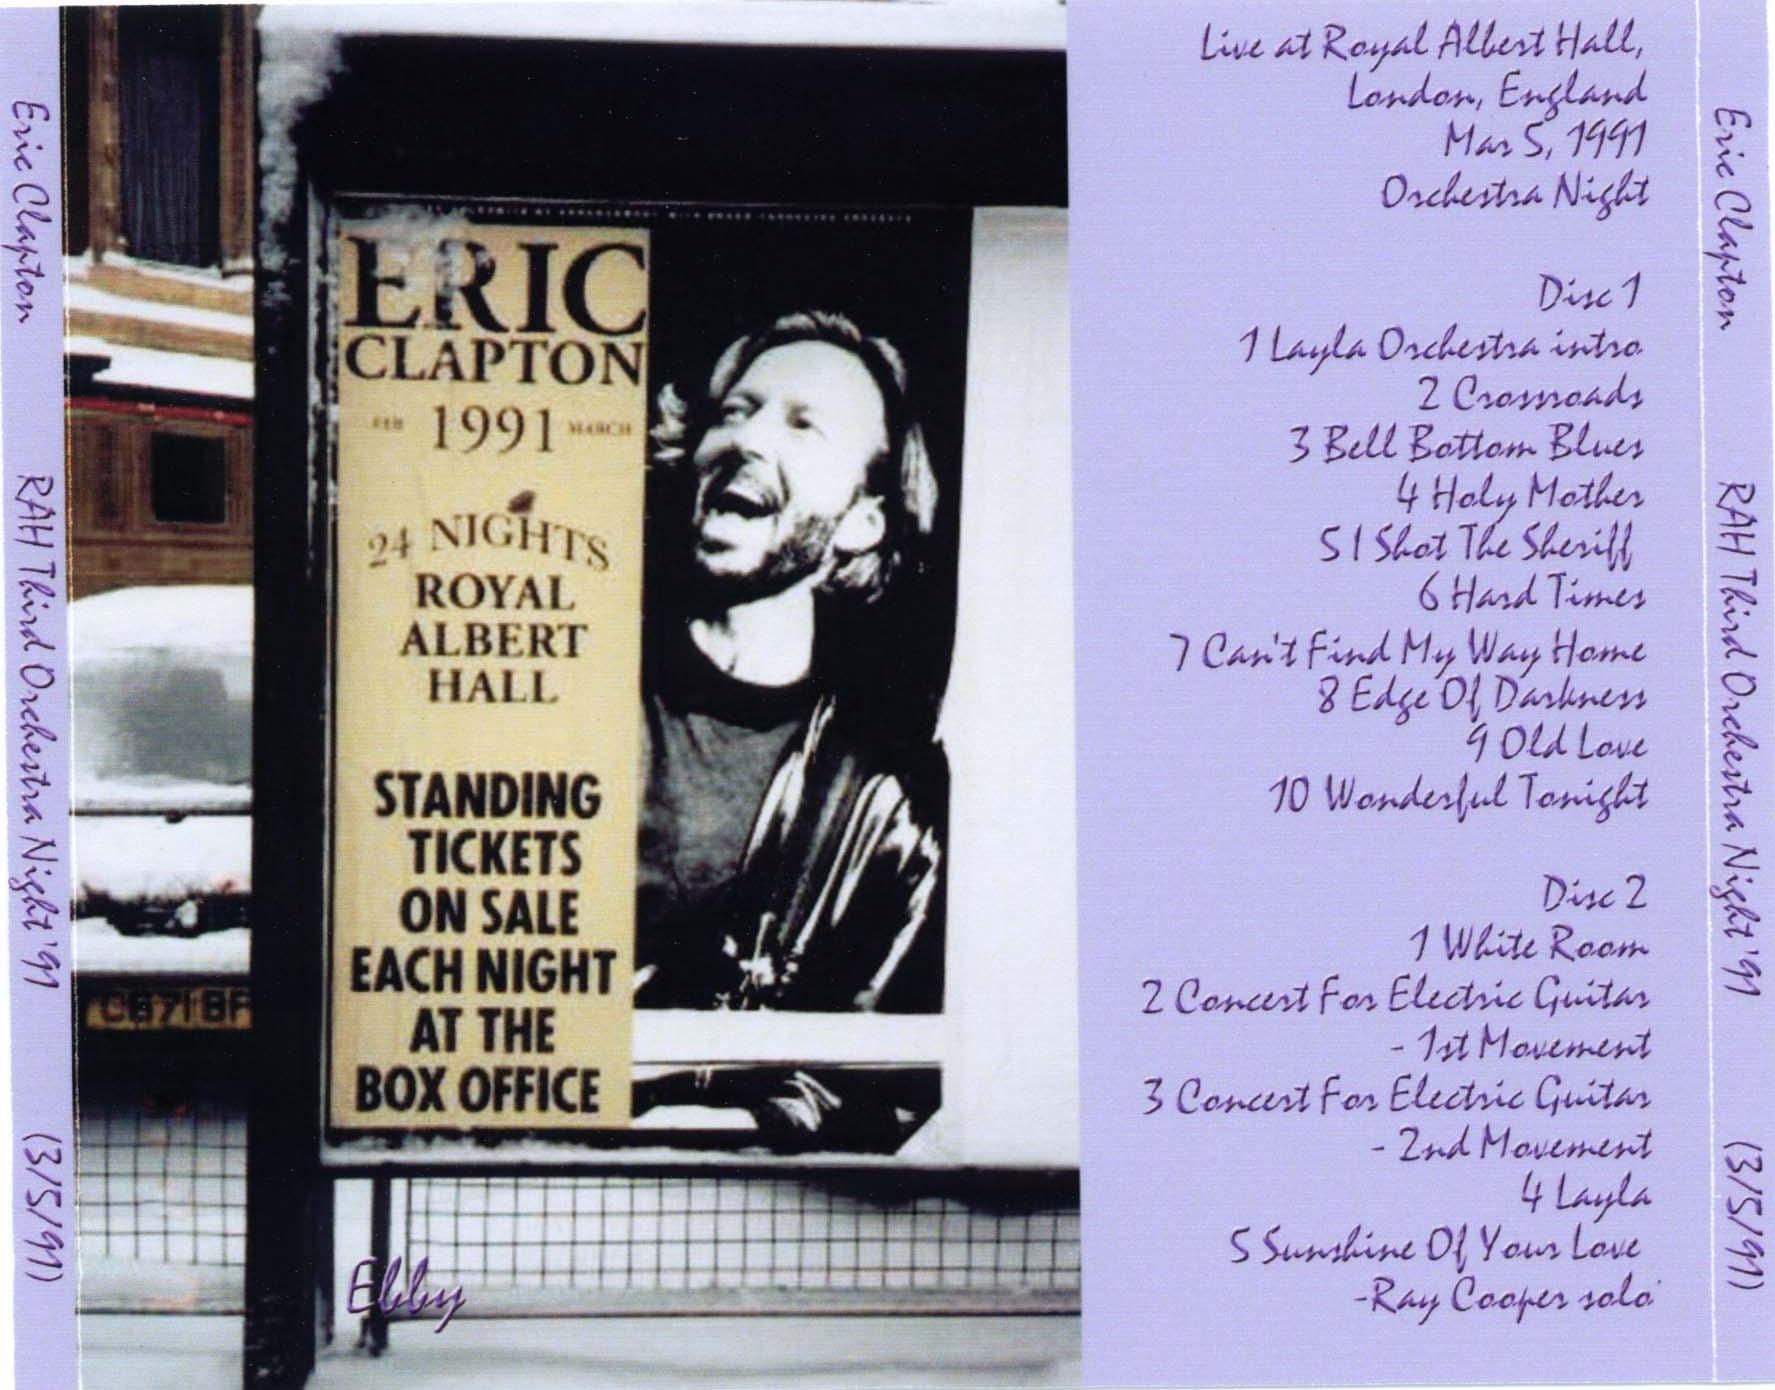 Eric Clapton RAH Third Orchestra Night '91 (3/5/91)
ERIC
CLAPTON
FEB 1991 MARCH
24 NIGHTS
ROYAL
ALBERT
HALL
STANDING
TICKETS
ON SALE
EACH NIGHT
AT THE
BOX OFFICE
Ebby
Live at Royal Albert Hall,
London, England
Mar 5, 1991
Orchestra Night
Disc 1
1 Layla Orchestra intro
2 Crossroads
3 Bell Bottom Blues
4 Holy Mother
5 I Shot The Sheriff
6 Hard Times
7 Can't Find My Way Home
8 Edge Of Darkness
9 Old Love
10 Wonderful Tonight
Disc 2
1 White Room
2 Concert For Electric Guitar
- 1st Movement
3 Concert For Electric Guitar
- 2nd Movement
4 Layla
5 Sunshine Of Your Love
-Ray Cooper solo
Eric Clapton RAH Third Orchestra Night '91 (3/5/91)